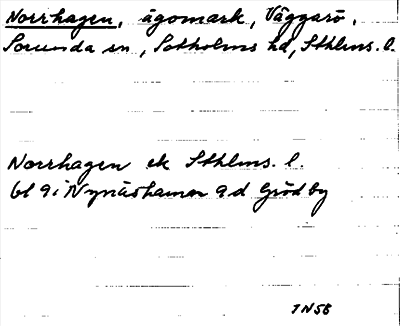 Norrhagen, ägomark, Väggarö,
Sorunda sn, Sotholms hd, Sthlms. l.
Norrhagen ek Sthlms. l.
bl 9i Nynäshamn 9d Grödby
7N56